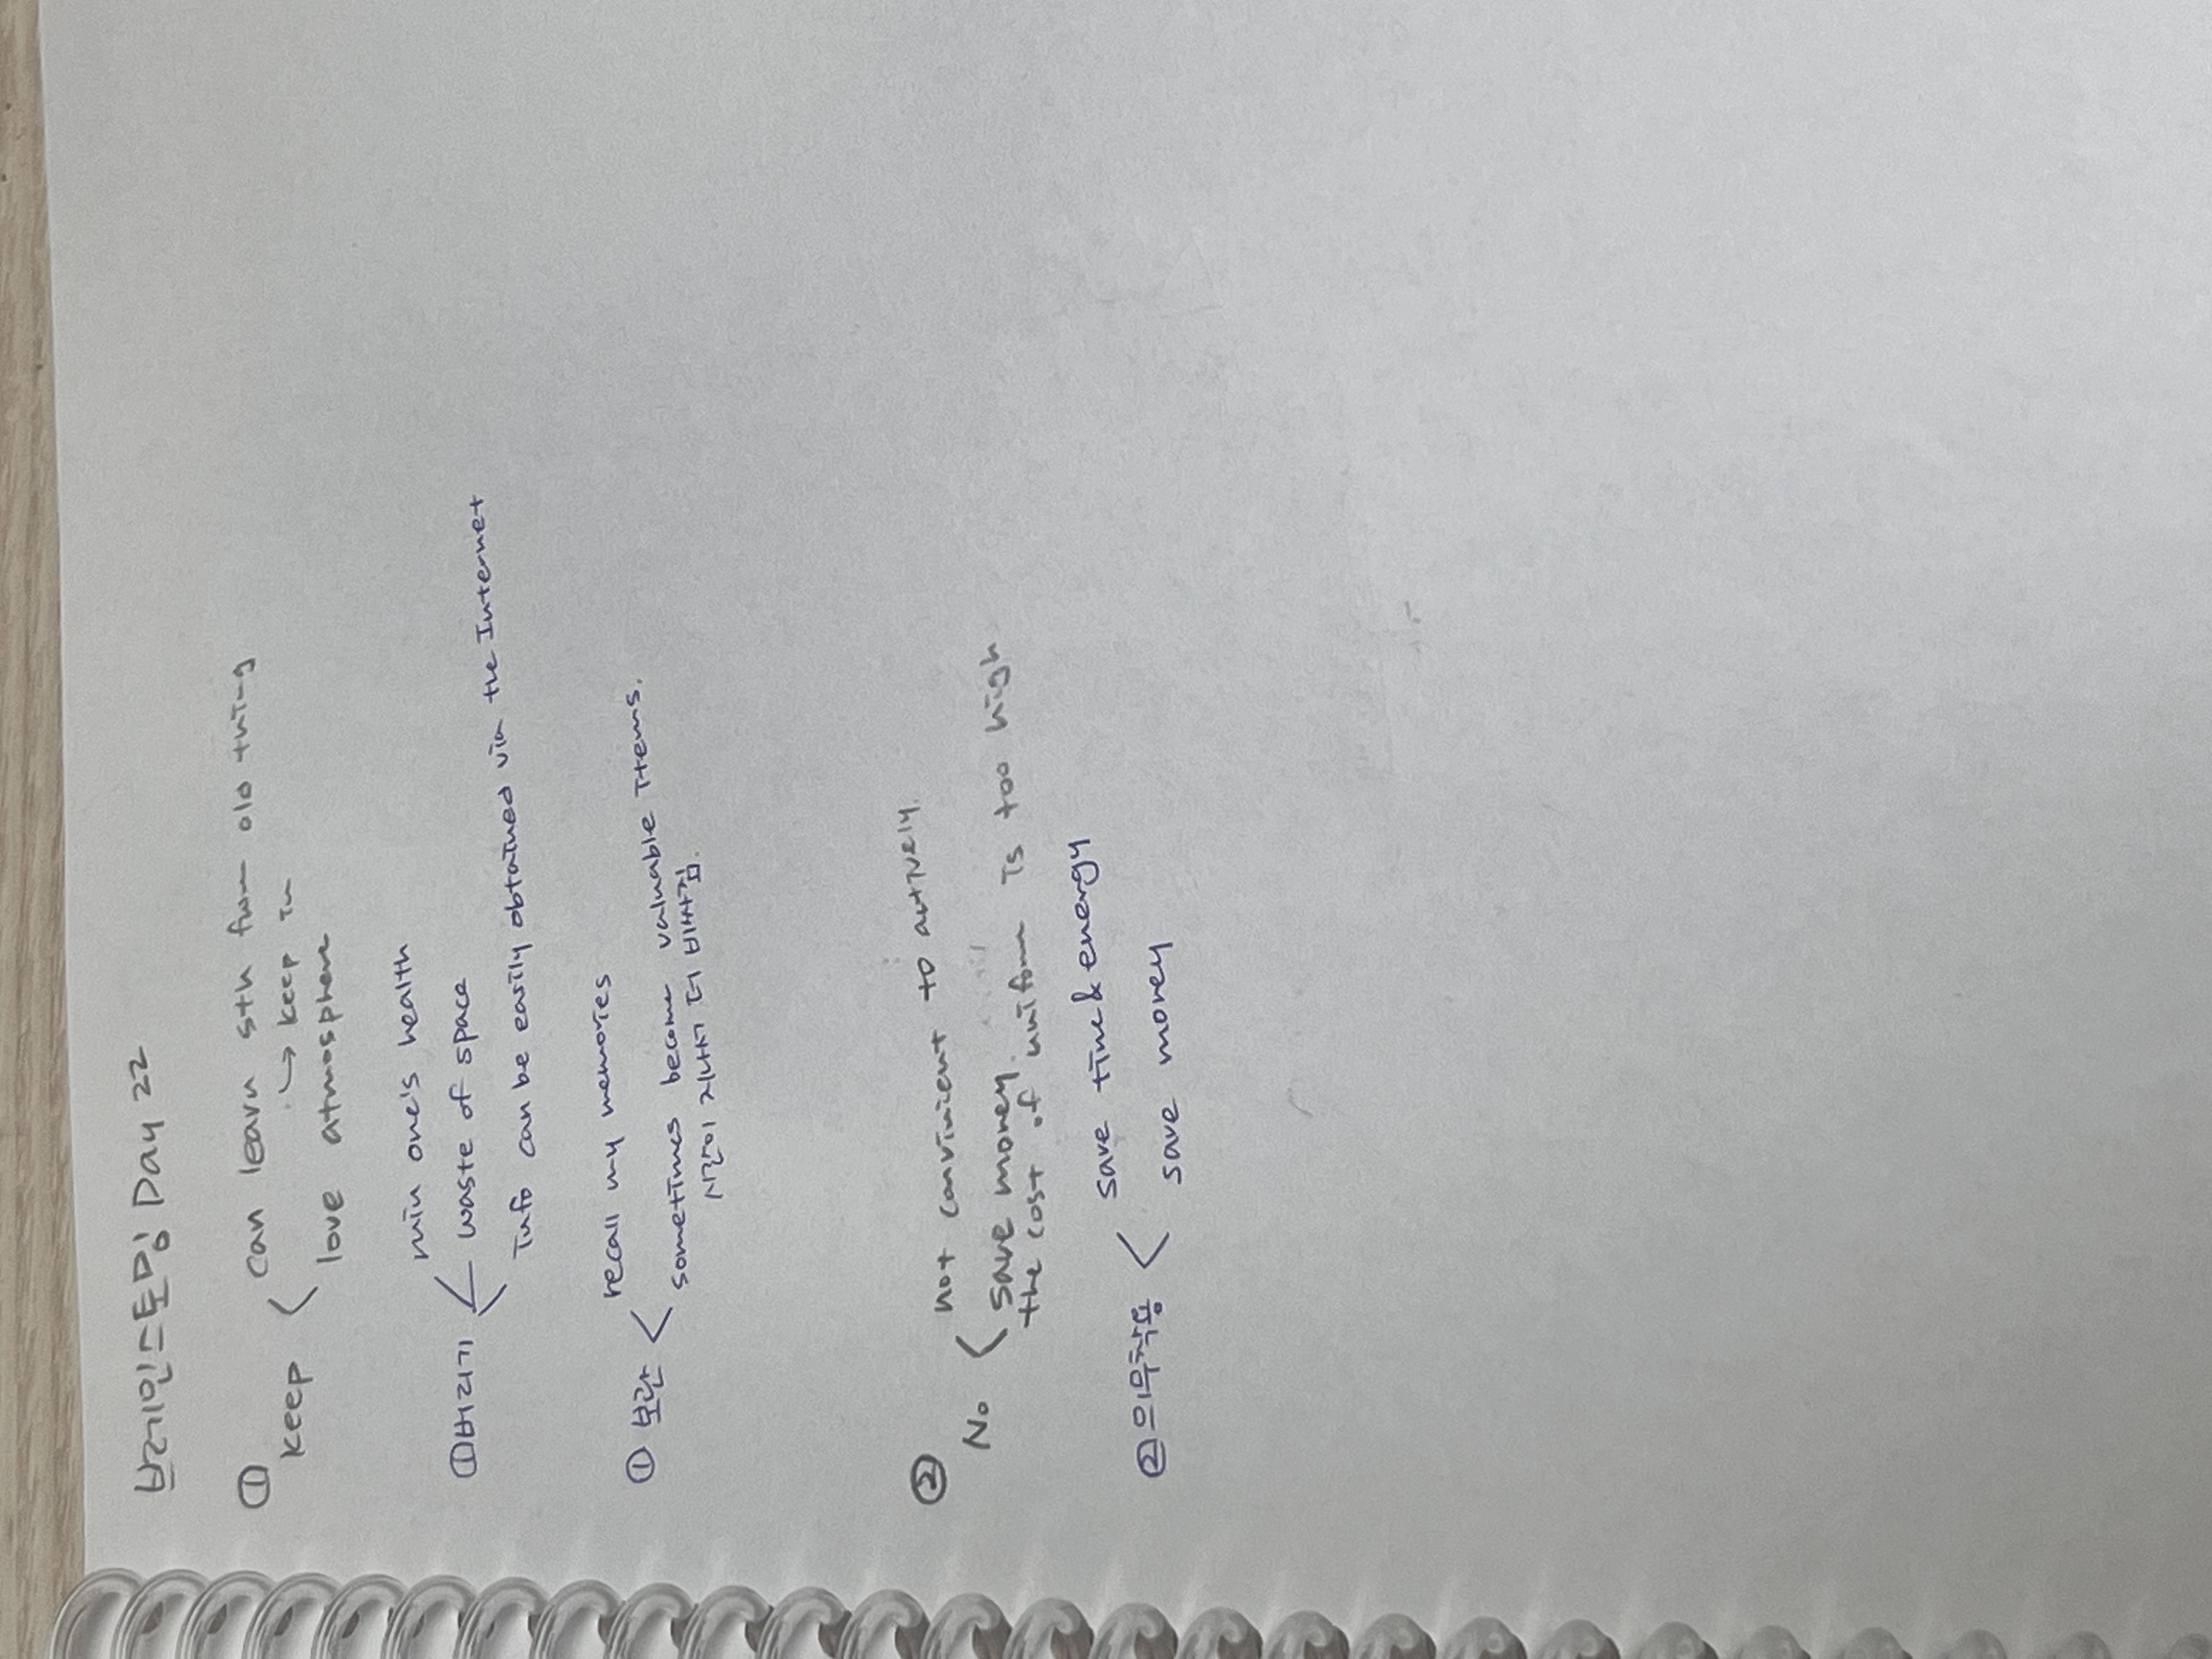 브레인스토밍 Day 22
①
can learn sth from old thing
↳ keep in
keep <
love atmosphere
ruin one's health
①버리기 < waste of space
Info can be easily obtained via the Internet
recall my memories
① 보관 <
sometimes become valuable items.
시간이 지나서 더 비싸짐.
②
not convinient to actively.
No <
save money.
the cost of uniform is too high
save time & energy
②의무착용 <
save money